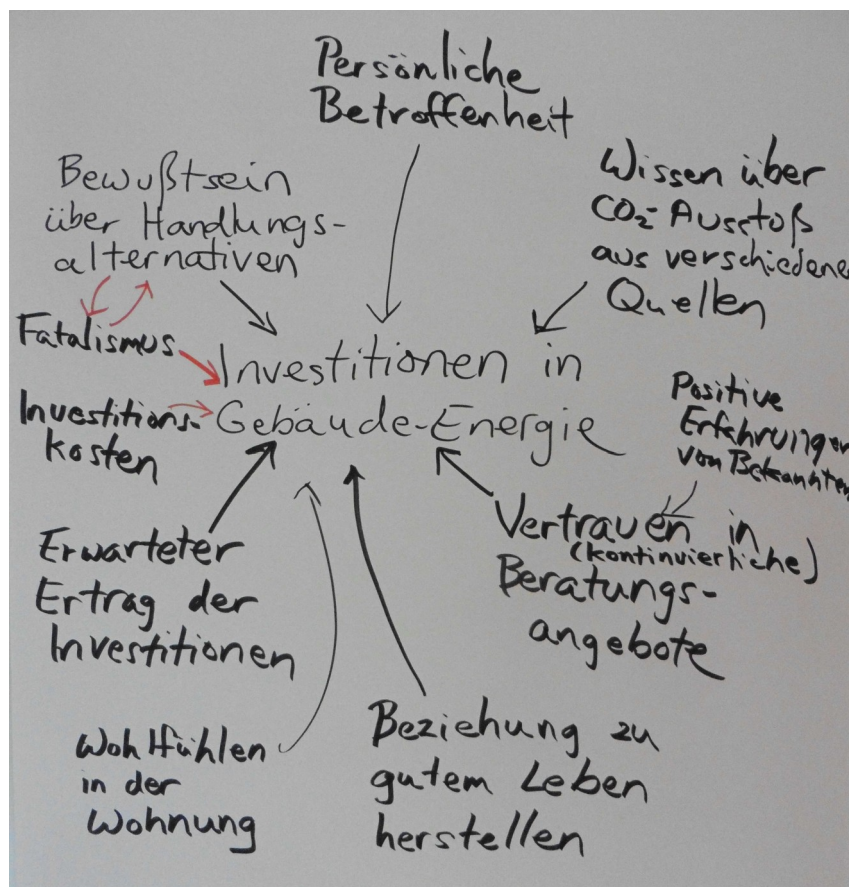 Persönliche
Betroffenheit
Bewußtsein
über Handlungs-
alternativen
Wissen über
CO₂-Ausstoß
aus verschiedenen
Quellen
Fatalismus
Investitionen in
Gebäude-Energie
Investitions-
kosten
Positive
Erfahrungen
von Bekannten
Erwarteter
Ertrag der
Investitionen
Vertrauen in
(kontinuierliche)
Beratungs-
angebote
Wohlfühlen
in der
Wohnung
Beziehung zu
gutem Leben
herstellen